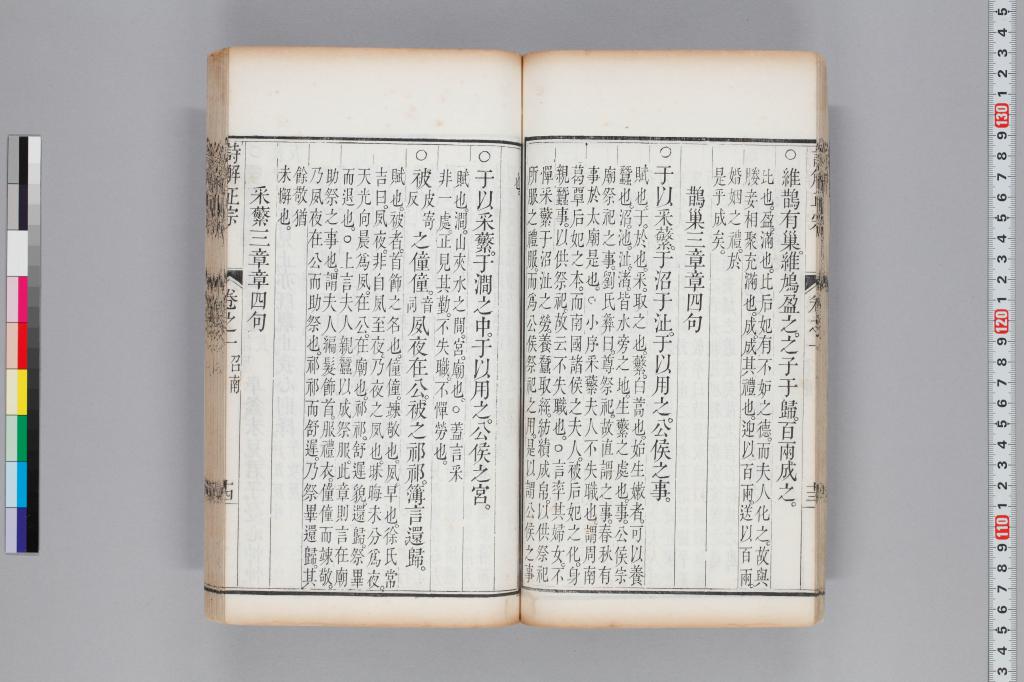 ○維鵲有巢。維鳩盈之。之子于歸。百兩成之。
比也。盈。滿也。比后妃有不妒之德。而夫人化之。故與
媵妾相聚充滿也。成。成其禮也。迎以百兩。送以百兩。
婚姻之禮。於
是乎成矣。
鵲巢三章章四句
○于以采蘩。于沼于沚。于以用之。公侯之事。
賦也。于。於也。采。取之也。蘩。白蒿也。始生嫩者。可以養
蠶也。沼。池也。沚。渚。皆水旁之地。生蘩之處也。事。公侯宗
廟祭祀之事。劉氏彝曰。尊祭祀。故直謂之事。春秋有
事於太廟是也。○小序采蘩夫人不失職也。謂周南
葛覃后妃之本。而南國諸侯之夫人。被后妃之化。身
親蠶事。以供祭祀。故云不失職也。○言率其婦女。不
憚采蘩于沼沚之勞。養蠶取絲。紡績成帛。以供祭祀
所服之禮服。而爲公侯祭祀之用。是以謂公侯之事
也。
○于以采蘩。于澗之中。于以用之。公侯之宮。
賦也。澗。山夾水之間。宮。廟也。○蓋言采
非一處。正見其勤。不失職。不憚勞也。
○被皮寄反之僮僮音同夙夜在公。被之祁祁。薄言還歸。
賦也。被者。首飾之名也。僮僮。竦敬也。夙。早也。徐氏常
吉曰。夙夜。非自夙至夜。乃夜之夙也。昧晦未分爲夜。
天光向晨爲夙。在公。在廟也。祁祁。舒遲貌。還歸。祭畢
而退也。○上言夫人親蠶以成祭服。此章則言在廟
助祭之事也。謂夫人編髮飾首。服禮衣。僮僮而竦敬。
乃夙夜在公而助祭也。祁祁而舒遲。乃祭畢還歸。其
餘敬猶
未懈也。
采蘩三章章四句
詩解正宗 卷之一 召南 十四